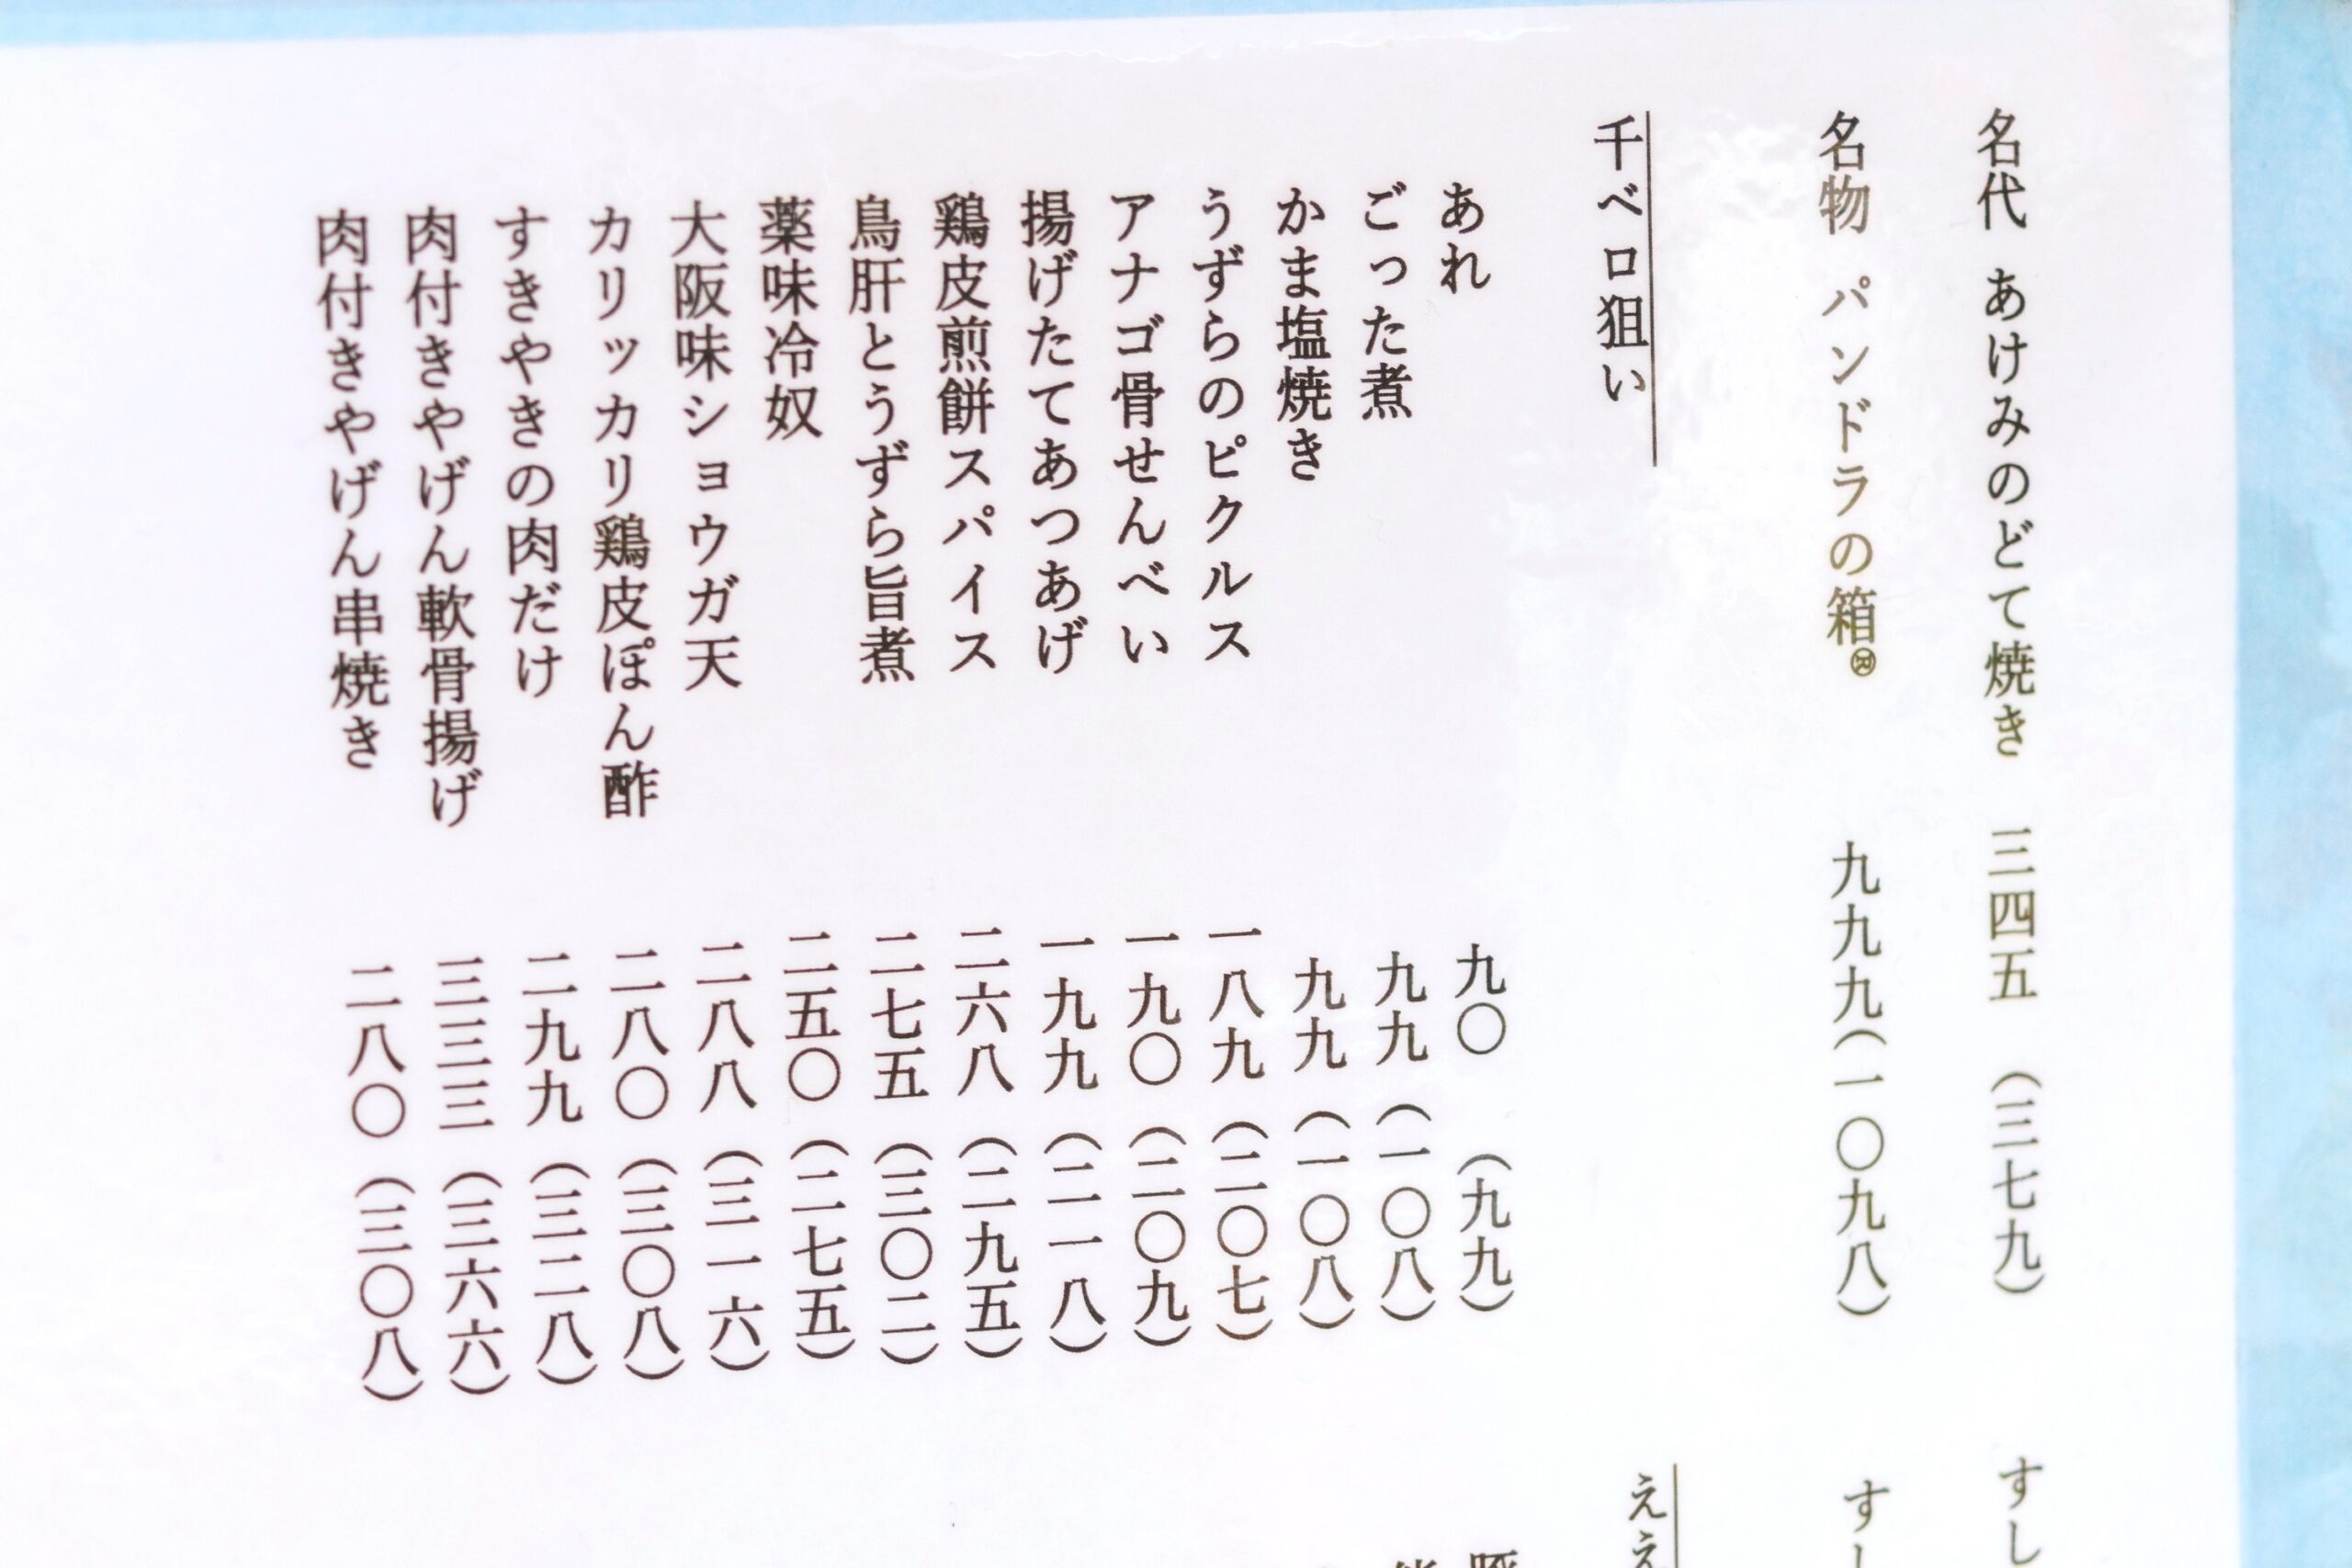 名代 あけみのどて焼き 三四五 （三七九）
名物 パンドラの箱® 九九九（一〇九八）
千ベロ狙い
あれ 九〇 （九九）
ごった煮 九九 （一〇八）
かま塩焼き 九九 （一〇八）
うずらのピクルス 一八九 （二〇七）
アナゴ骨せんべい 一九〇 （二〇九）
揚げたてあつあげ 一九九 （二一八）
鶏皮煎餅スパイス 二六八 （二九五）
鳥肝とうずら旨煮 二七五 （三〇二）
薬味冷奴 二五〇 （二七五）
大阪味ショウガ天 二八八 （三一六）
カリッカリ鶏皮ぽん酢 二八〇 （三〇八）
すきやきの肉だけ 二九九 （三二八）
肉付きやげん軟骨揚げ 三三三 （三六六）
肉付きやげん串焼き 二八〇 （三〇八）
すし
すし
ええ